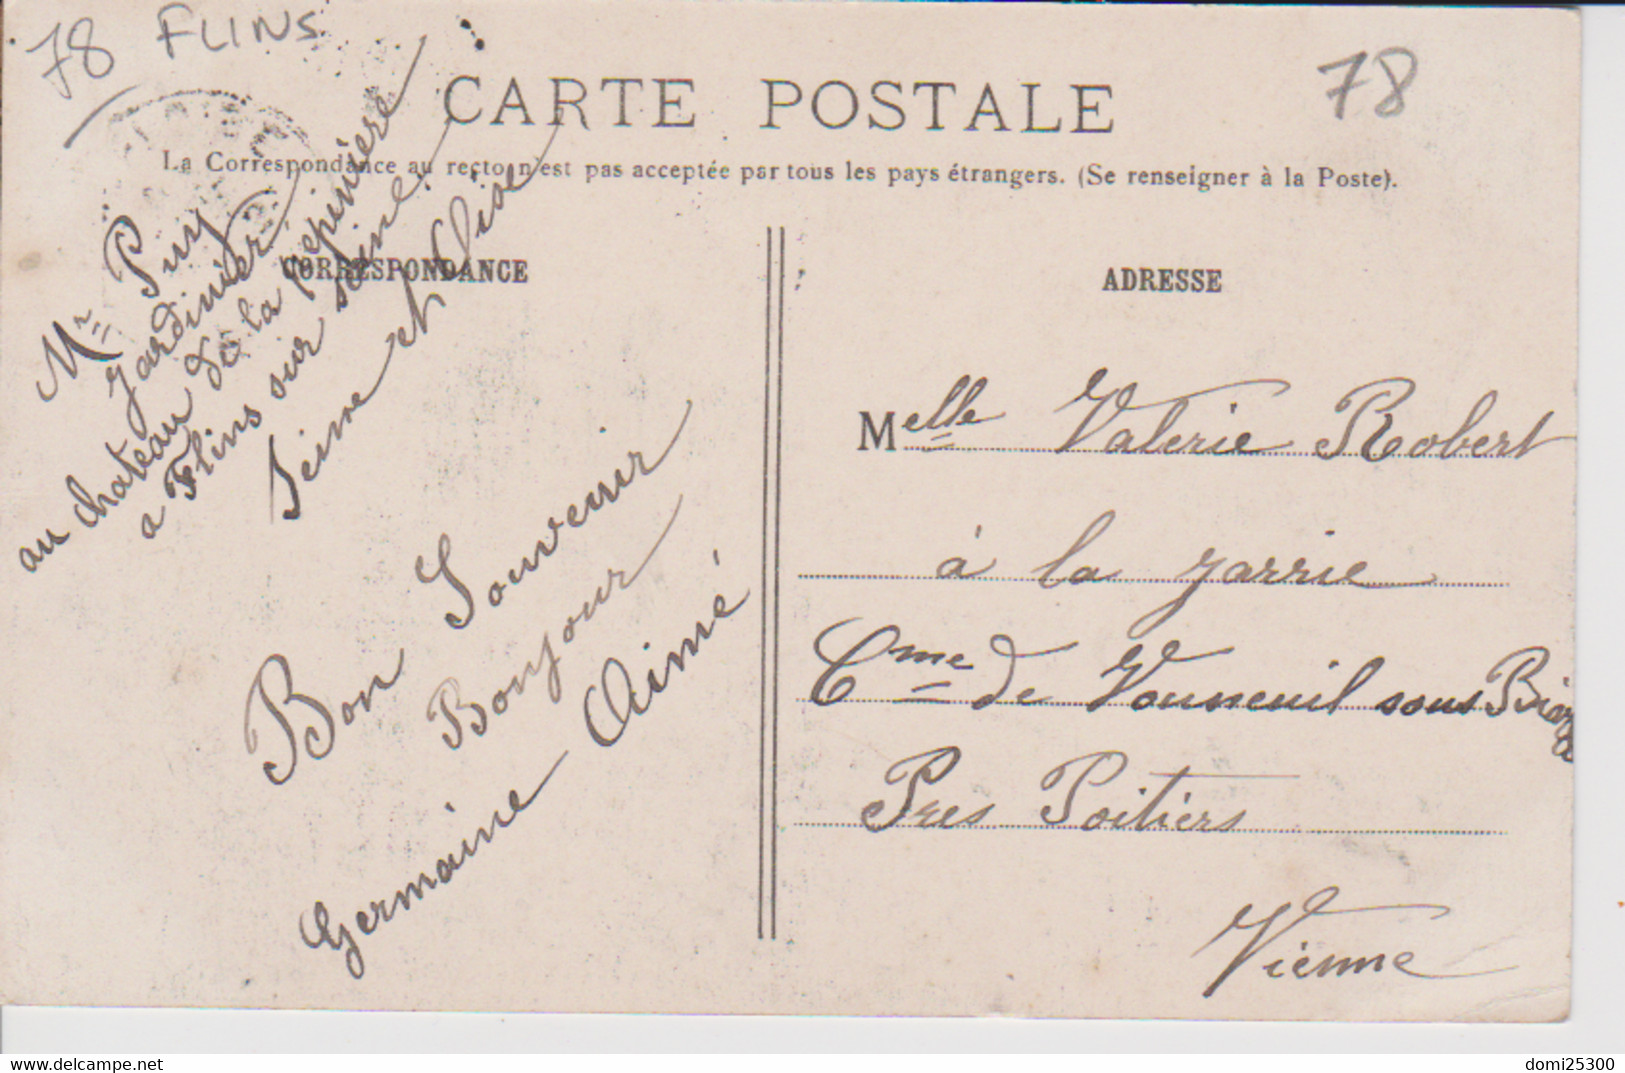 78 FLINS
78
CARTE POSTALE
La Correspondance au recto n'est pas acceptée par tous les pays étrangers. (Se renseigner à la Poste).
CORRESPONDANCE
Mr Puy
Jardinier
au chateau de la pepiniere
a Flins sur seine
Seine et Oise
Bon Souvenir
Bonjour
Germaine Aimé
ADRESSE
Melle Valerie Robert
à la Jarrie
Cme de Vouneuil sous Biard
Pres Poitiers
Vienne
delcampe.net
domi25300